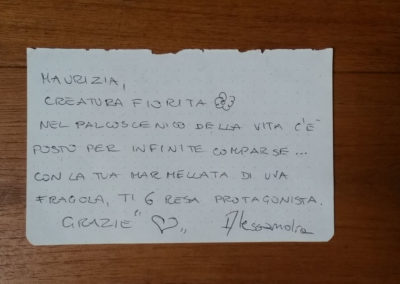 MAURIZIA,
CREATURA FIORITA
NEL PALCOSCENICO DELLA VITA C'È
POSTO PER INFINITE COMPARSE...
CON LA TUA MARMELLATA DI UVA
FRAGOLA, TI 6 RESA PROTAGONISTA.
GRAZIE" ♡ „
Alessandra